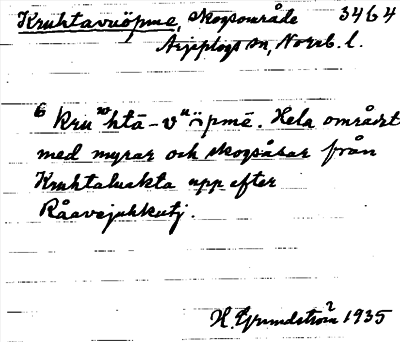 Kruhtavuöpme, skogsområde 3464
Arjeplogs sn, Norrb. l.
6 kruʷhtā-vᵘöpmē. Hela området
med myrar och skogsåsar från
Kruhtaluakta upp efter
Råavejuhkutj.
H. Grundström 1935